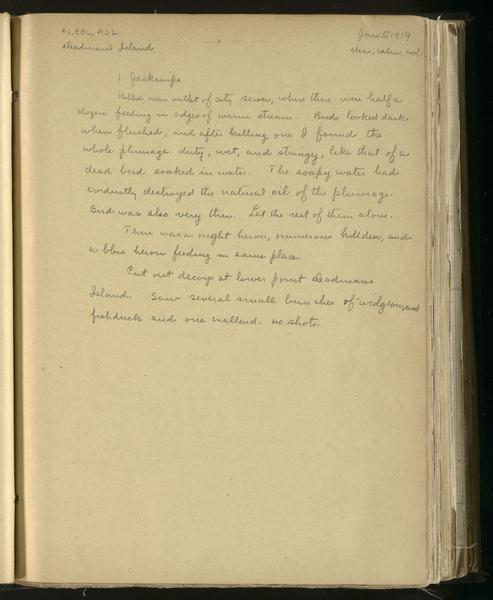 AL, EBL, ASL
Jan 5, 1919
Deadman's Island
clear, calm, cool
1 Jacksnipe
Killed near outlet of city sewer, where there were half a
dozen feeding in edges of warm stream. Birds looked dark
when flushed, and after killing one I found the
whole plumage dirty, wet, and stringy, like that of a
dead bird soaked in water. The soapy water had
evidently destroyed the natural oil of the plumage.
Bird was also very thin. Let the rest of them alone.
There was a night heron, numerous killdeer, and
a blue heron feeding in same place.
Put out decoys at lower point Deadmans
Island. Saw several small bunches of widgeon, and
fishducks and one mallard. no shots.